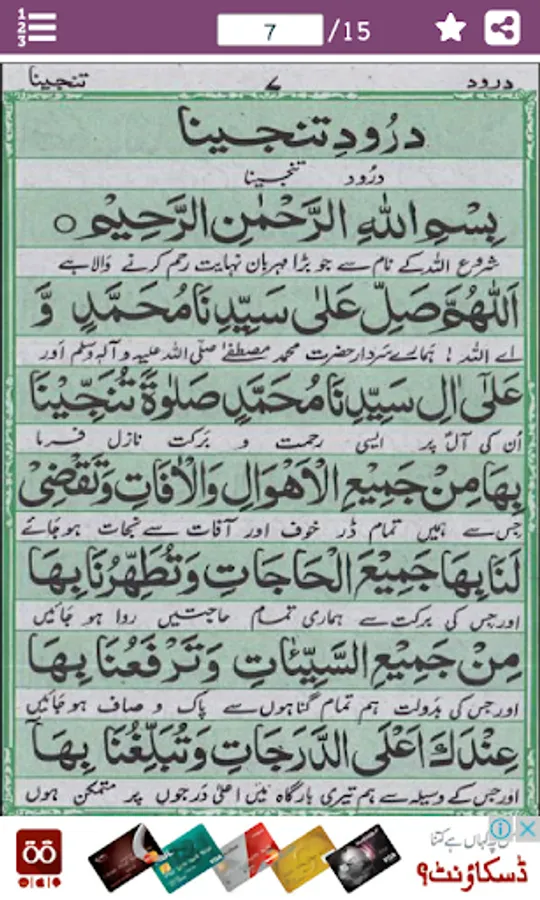 1
2
3
7 /15
درود ۷ تنجینا
درُودِ تنجینا
درُود تنجینا
بِسْمِ اللهِ الرَّحْمٰنِ الرَّحِيْمِ ○
شروع اللہ کے نام سے جو بڑا مہربان نہایت رحم کرنے والا ہے
اَللّٰهُمَّ صَلِّ عَلٰى سَيِّدِنَا مُحَمَّدٍ وَّ
اے اللہ ! ہمارے سردار حضرت محمد مصطفٰے صلّی اللہ علیہ و آلہٖ وسلم اور
عَلٰٓى اٰلِ سَيِّدِنَا مُحَمَّدٍ صَلٰوةً تُنَجِّيْنَا
اُن کی آل پر ایسی رحمت و برکت نازل فرما
بِهَا مِنْ جَمِيْعِ الْاَهْوَالِ وَالْاٰفَاتِ وَتَقْضِىْ
جس سے ہمیں تمام ڈر خوف اور آفات سے نجات ہو جائے
لَنَا بِهَا جَمِيْعَ الْحَاجَاتِ وَتُطَهِّرُنَا بِهَا
اور جس کی برکت سے ہماری تمام حاجتیں روا ہو جائیں
مِنْ جَمِيْعِ السَّيِّاٰتِ وَتَرْفَعُنَا بِهَا
اور جس کی بدولت ہم تمام گناہوں سے پاک و صاف ہو جائیں
عِنْدَكَ اَعْلَى الدَّرَجَاتِ وَتُبَلِّغُنَا بِهَآ
اور جس کے وسیلہ سے ہم تیری بارگاہ میں اعلیٰ درجوں پر متمکن ہوں
پہ کہاں ہے کتنا
ڈسکاؤنٹ؟